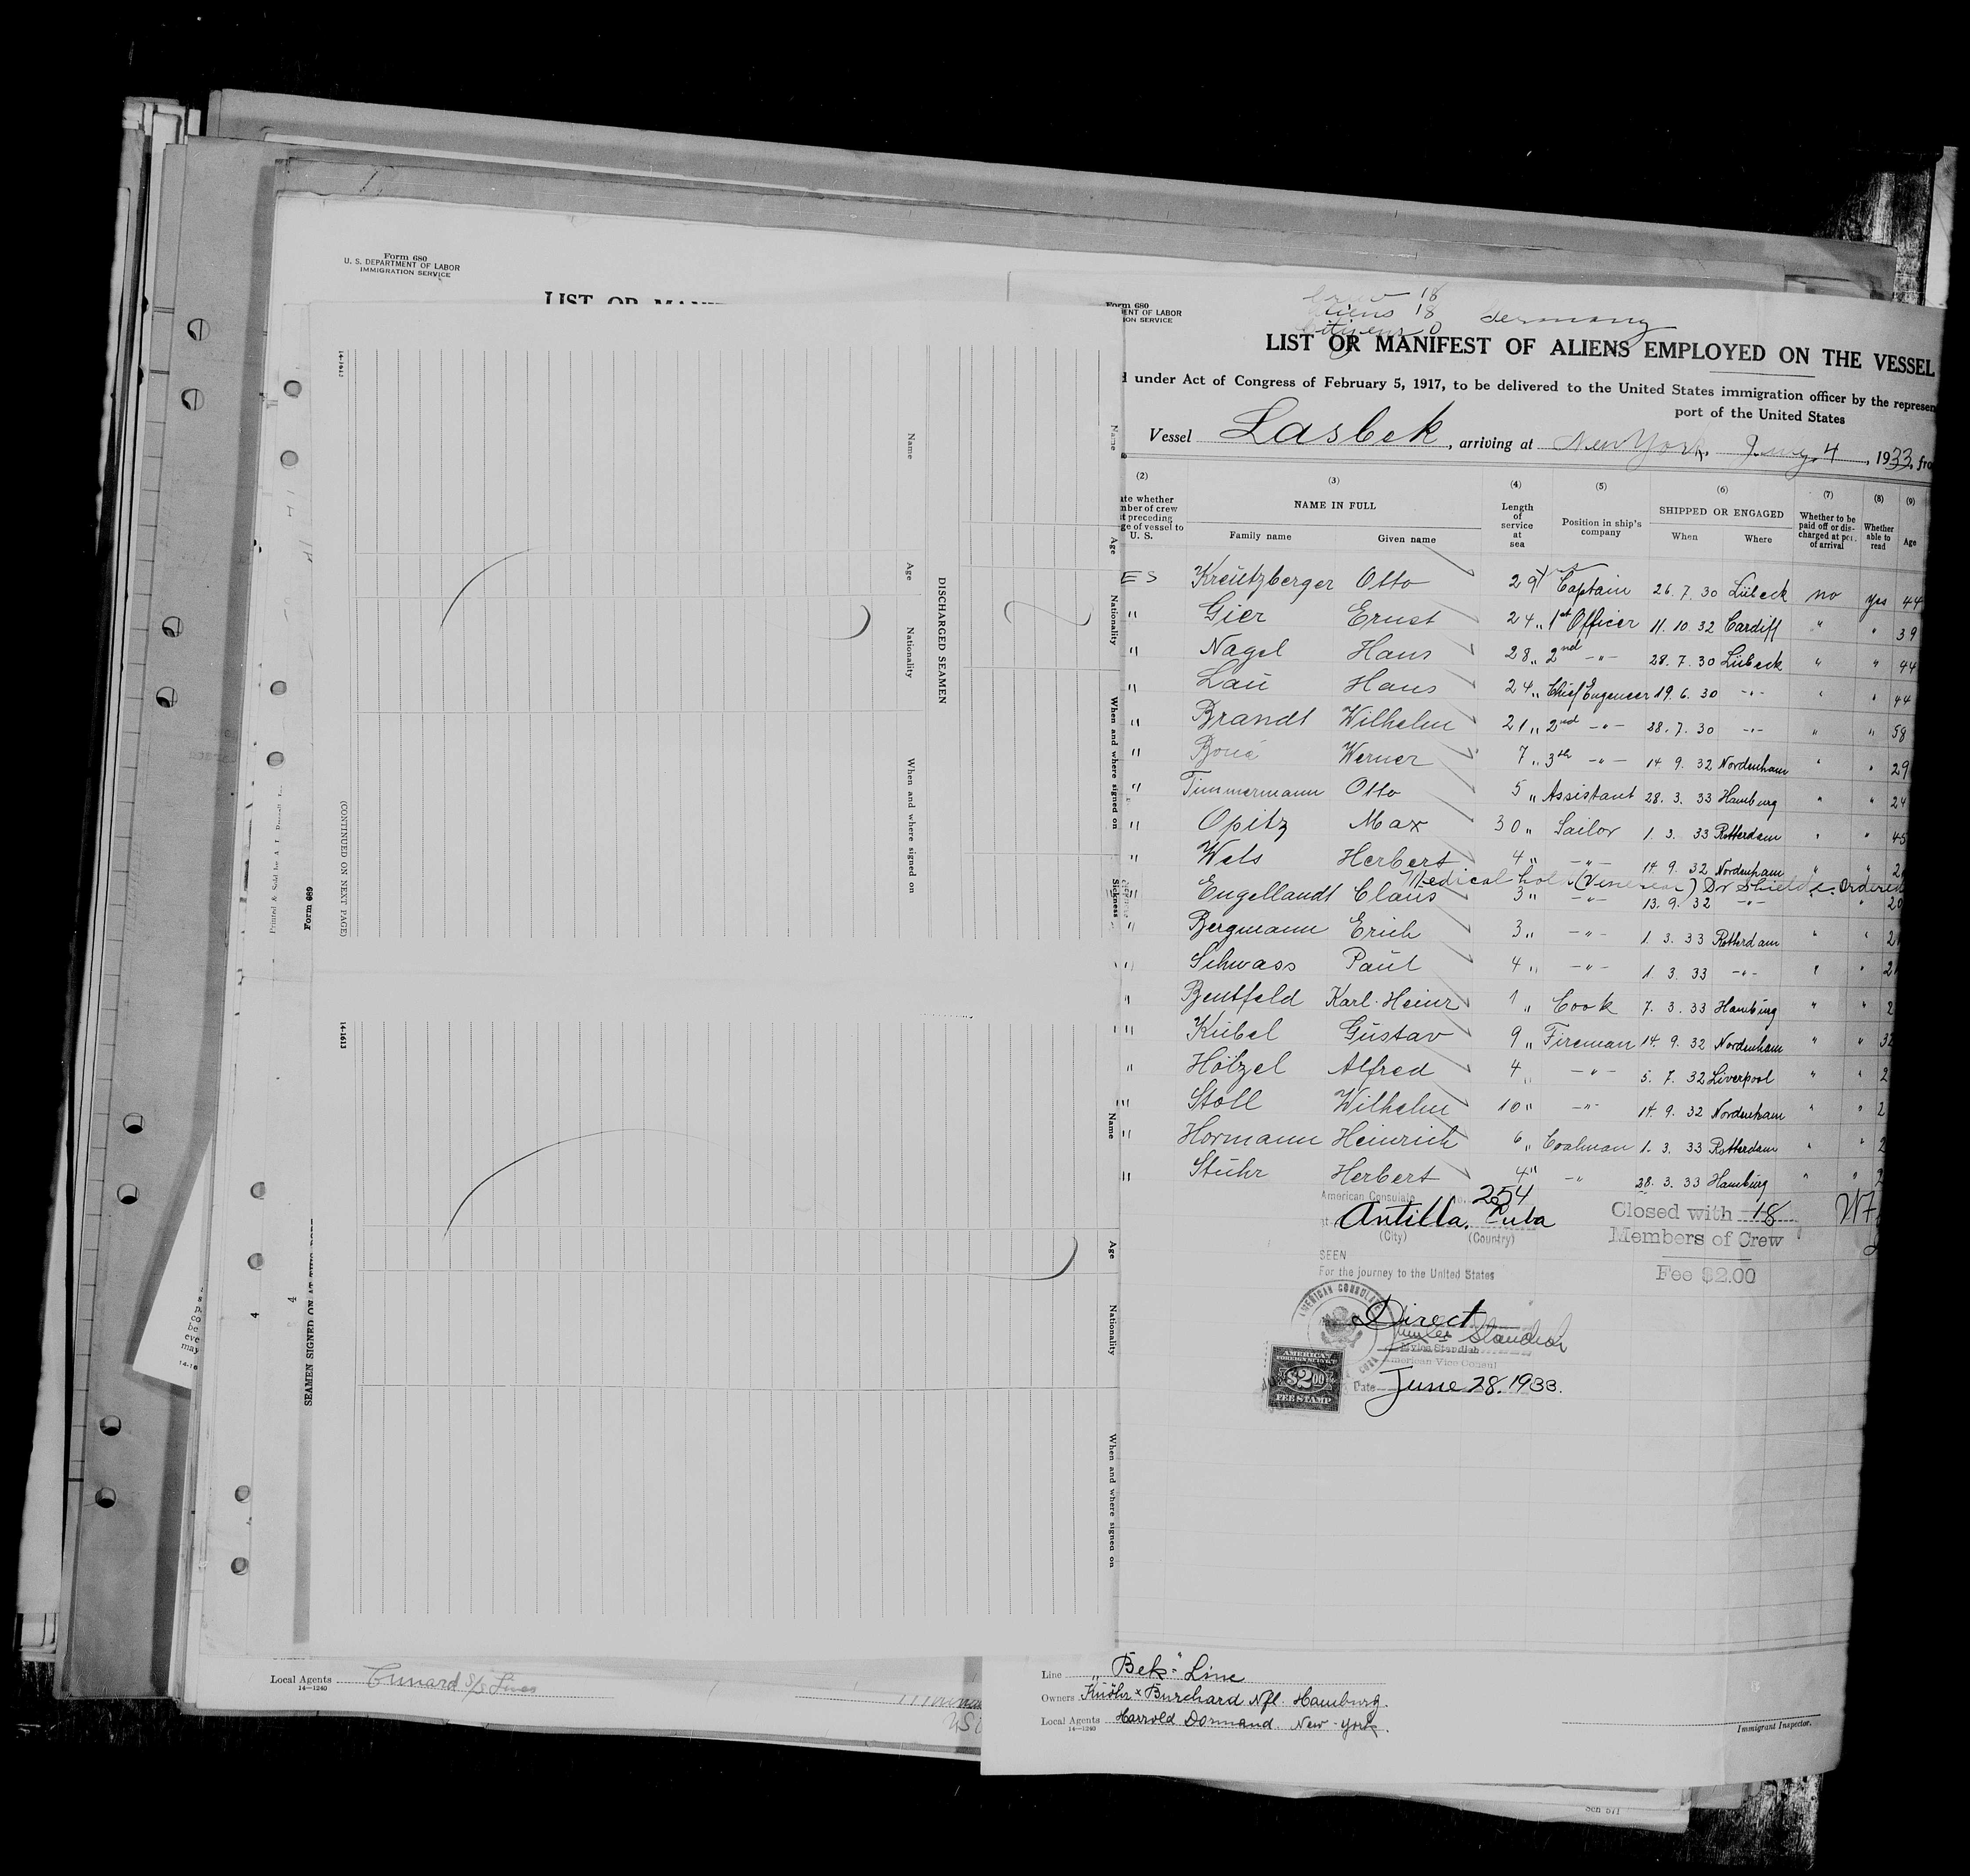 Form 680
U. S. DEPARTMENT OF LABOR
IMMIGRATION SERVICE
14-1613
Name
Age
Nationality
When and where signed on
DISCHARGED SEAMEN
Name
Age
Nationality
When and where signed on
Sickness
(CONTINUED ON NEXT PAGE)
Form 689
14-1613
Name
Age
Nationality
When and where signed on
SEAMEN SIGNED ON AT THIS PORT
4
4
Local Agents Cunard S/S Lines
14-1240
Form 680
ENT OF LABOR
ION SERVICE
Crew 18
Aliens 18 Germany
Citizens 0
LIST OR MANIFEST OF ALIENS EMPLOYED ON THE VESSEL
under Act of Congress of February 5, 1917, to be delivered to the United States immigration officer by the represen
port of the United States
Vessel Lasbek, arriving at New York, July 4, 1933, fro
(2) (3) (4) (5) (6) (7) (8) (9)
ate whether
mber of crew
t preceding
ge of vessel to
U. S.
NAME IN FULL
Family name Given name
Length of service at sea
Position in ship's company
SHIPPED OR ENGAGED
When Where
Whether to be paid off or discharged at port of arrival
Whether able to read
Age
ES Kreützberger Otto 29 Captain 26. 7. 30 Lübeck no yes 44
" Gier Ernst 24 " 1st Officer 11. 10. 32 Cardiff " " 39
" Nagel Hans 28 " 2nd -"- 28. 7. 30 Lübeck " " 44
" Laü Hans 24 " Chief Engeneer 19. 6. 30 -"- " " 44
" Brandt Wilhelm 21 " 2nd -"- 28. 7. 30 -"- " " 58
" Werner 7 " 3th -"- 14. 9. 32 Nordenham " " 29
" Timmermann Otto 5 " Assistant 28. 3. 33 Hamburg " " 24
" Opitz Max 30 " Sailor 1. 3. 33 Rotterdam " " 45
" Wels Herbert 4 " -"- 14. 9. 32 Nordenham " " 2
Medical hold (Venereal) Dr Shields. Ordered
" Engellandt Claüs 3 " -"- 13. 9. 32 -"- " " 20
" Bergmann Erich 3 " -"- 1. 3. 33 Rotterdam " " 2
" Schwass Paül 4 " -"- 1. 3. 33 -"- " " 2
" Bentfeld Karl-Heinz 1 " Cook 7. 3. 33 Hambürg " " 2
" Kübel Güstav 9 " Fireman 14. 9. 32 Nordenham " " 32
" Hölzel Alfred 4 " -"- 5. 7. 32 Liverpool " " 2
" Stoll Wilhelm 10 " -"- 14. 9. 32 Nordenham " " 2
" Hormann Heinrich 6 " Coalman 1. 3. 33 Rotterdam " " 2
" Stühr Herbert 4 " -"- 28. 3. 33 Hambürg " " 2
American Consulate No. 254
at Antilla, Cuba
(City) (Country)
Closed with 18
Members of Crew
Fee $2.00
SEEN
For the journey to the United States
AMERICAN CONSULATE
Direct
Myles Standish
American Vice Consul
AMERICAN
FOREIGN SERVICE
$2.00
FEE STAMP
Date June 28. 1933.
Line "Bek"-Line
Owners Knöhr & Burchard Nfl. Hamburg.
Local Agents Harrold Dormand. New-York.
14-1240
Immigrant Inspector.